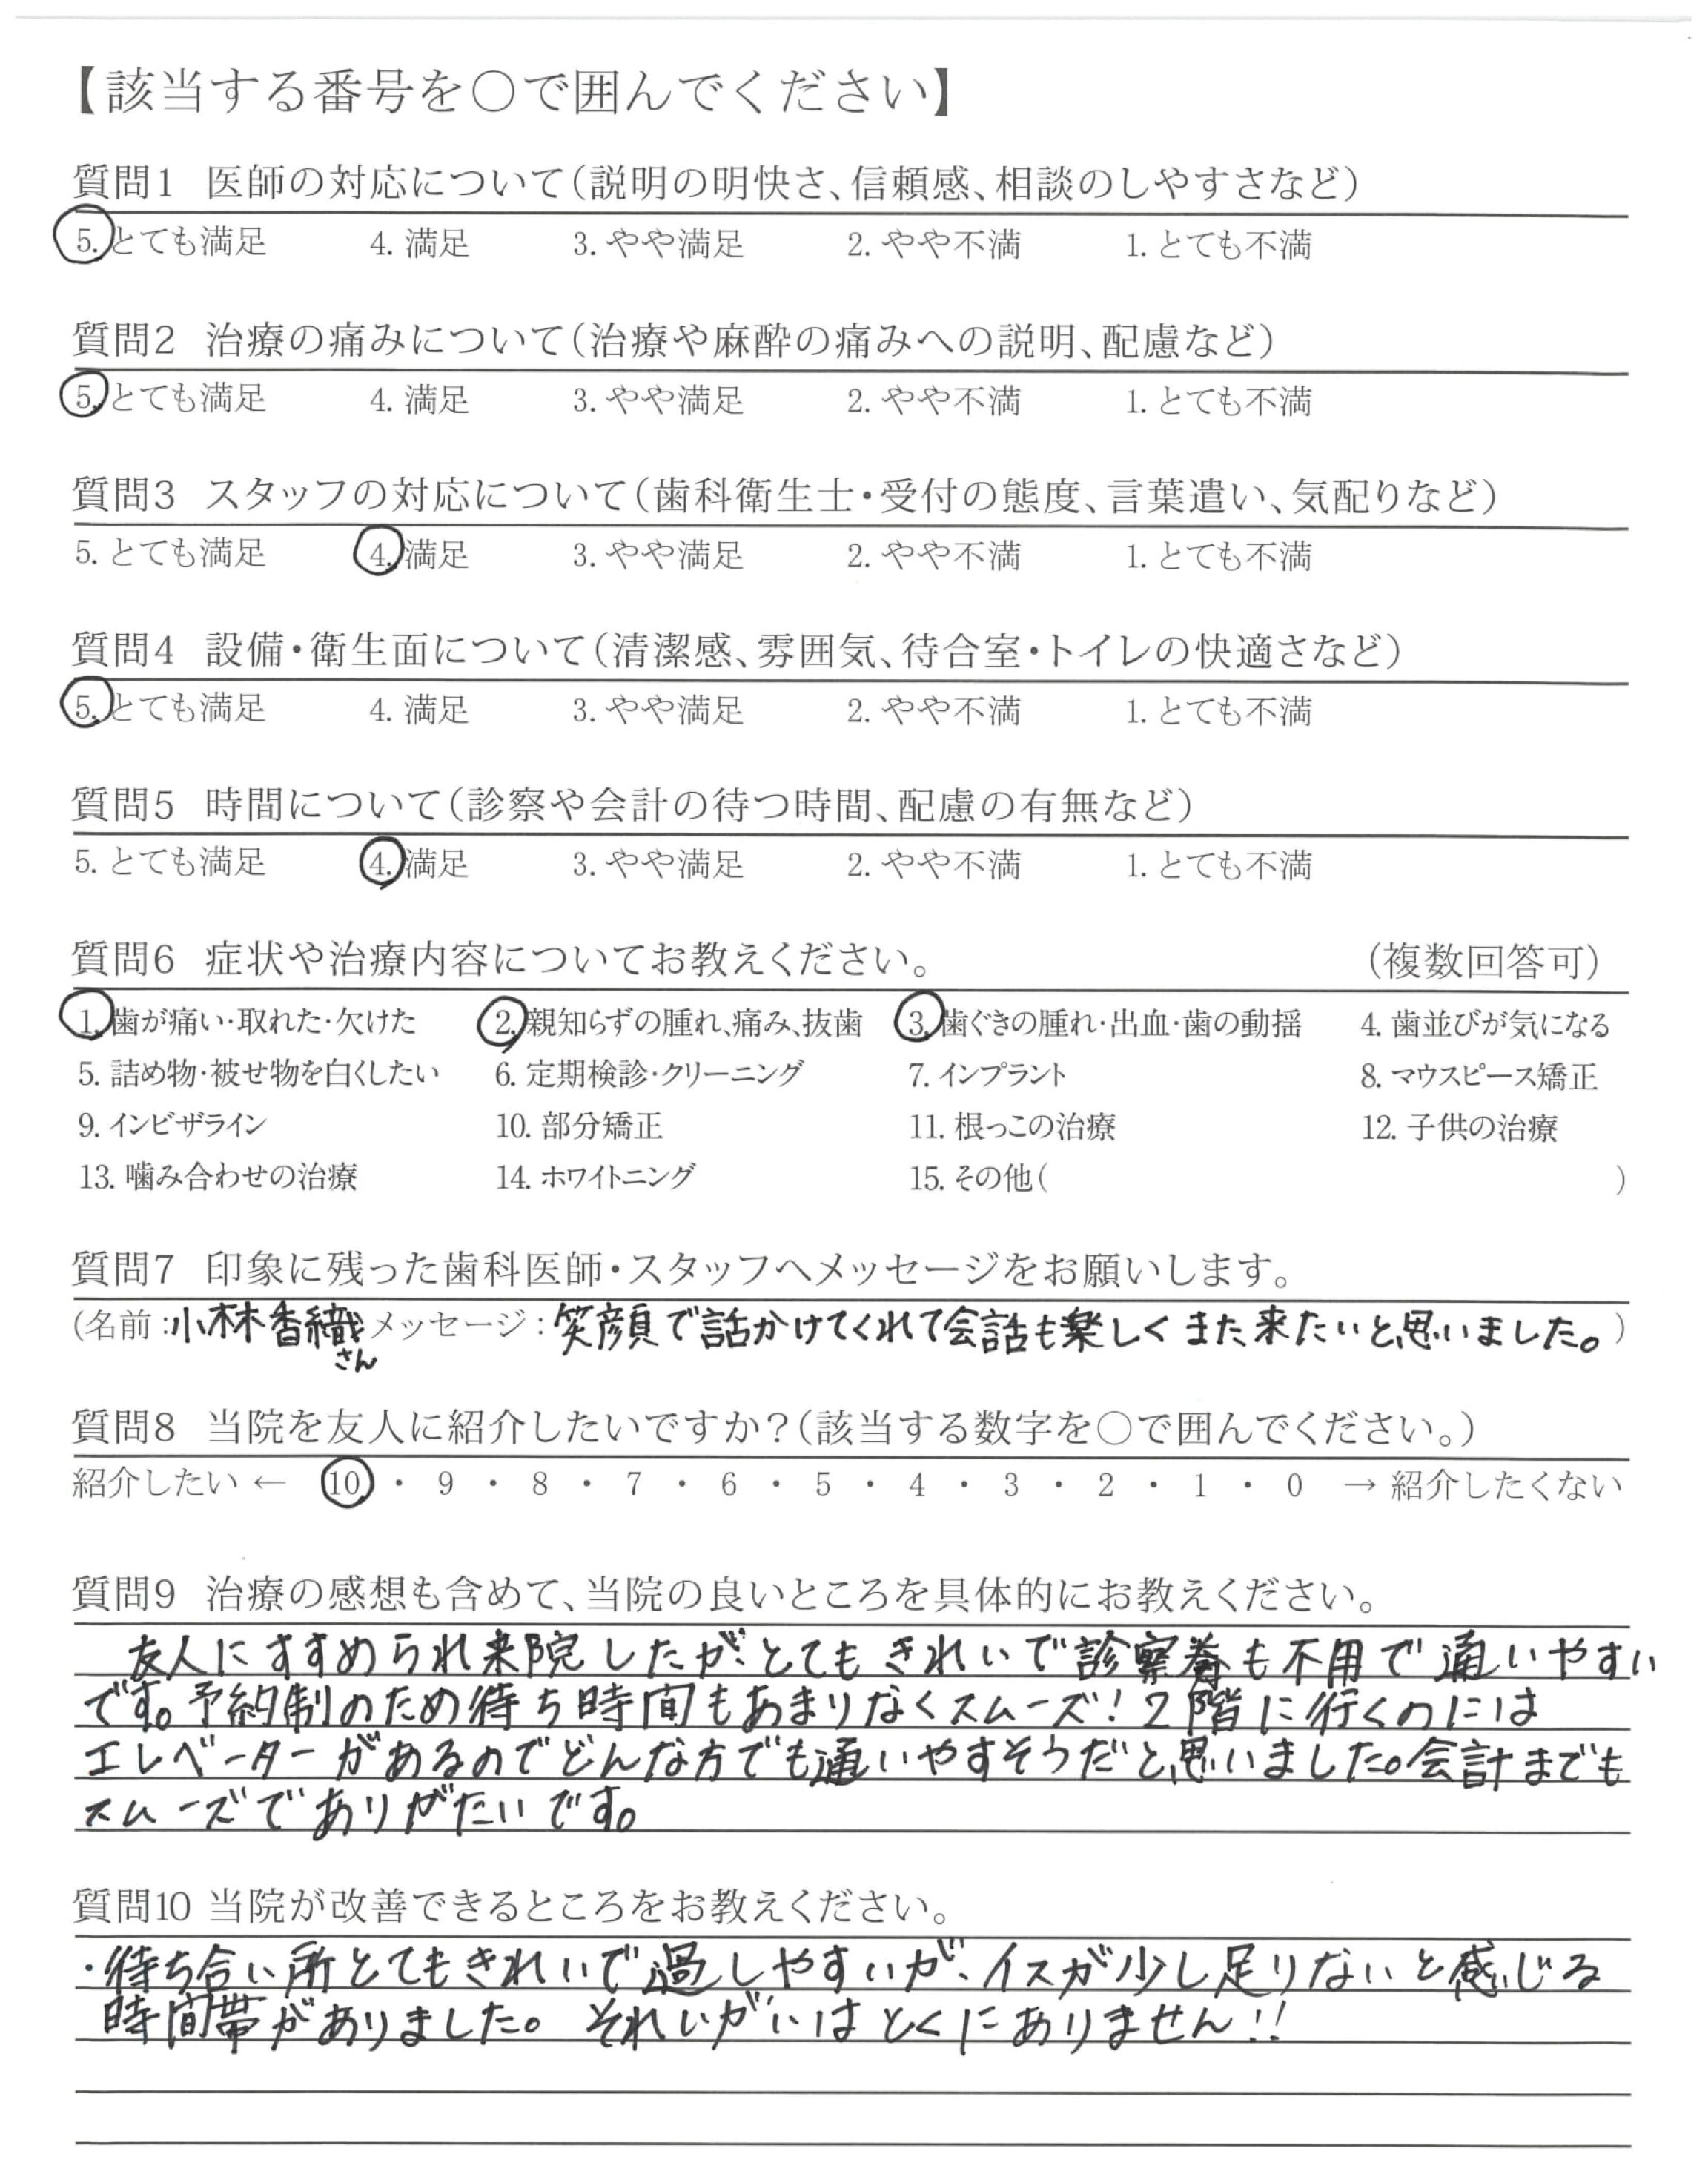 【該当する番号を○で囲んでください】
質問1 医師の対応について(説明の明快さ、信頼感、相談のしやすさなど)
5. とても満足 4. 満足 3. やや満足 2. やや不満 1. とても不満
質問2 治療の痛みについて(治療や麻酔の痛みへの説明、配慮など)
5. とても満足 4. 満足 3. やや満足 2. やや不満 1. とても不満
質問3 スタッフの対応について(歯科衛生士・受付の態度、言葉遣い、気配りなど)
5. とても満足 4. 満足 3. やや満足 2. やや不満 1. とても不満
質問4 設備・衛生面について(清潔感、雰囲気、待合室・トイレの快適さなど)
5. とても満足 4. 満足 3. やや満足 2. やや不満 1. とても不満
質問5 時間について(診察や会計の待つ時間、配慮の有無など)
5. とても満足 4. 満足 3. やや満足 2. やや不満 1. とても不満
質問6 症状や治療内容についてお教えください。 (複数回答可)
1. 歯が痛い・取れた・欠けた 2. 親知らずの腫れ、痛み、抜歯 3. 歯ぐきの腫れ・出血・歯の動揺 4. 歯並びが気になる
5. 詰め物・被せ物を白くしたい 6. 定期検診・クリーニング 7. インプラント 8. マウスピース矯正
9. インビザライン 10. 部分矯正 11. 根っこの治療 12. 子供の治療
13. 噛み合わせの治療 14. ホワイトニング 15. その他( )
質問7 印象に残った歯科医師・スタッフへメッセージをお願いします。
(名前:小林香織さん メッセージ:笑顔で話かけてくれて会話も楽しくまた来たいと思いました。)
質問8 当院を友人に紹介したいですか?(該当する数字を○で囲んでください。)
紹介したい ← 10 ・ 9 ・ 8 ・ 7 ・ 6 ・ 5 ・ 4 ・ 3 ・ 2 ・ 1 ・ 0 → 紹介したくない
質問9 治療の感想も含めて、当院の良いところを具体的にお教えください。
友人にすすめられ来院したが、とてもきれいで診察券も不用で通いやすい
です。予約制のため待ち時間もあまりなくスムーズ!2階に行くのには
エレベーターがあるのでどんな方でも通いやすそうだと思いました。会計までも
スムーズでありがたいです。
質問10 当院が改善できるところをお教えください。
・待ち合い所とてもきれいで過しやすいが、イスが少し足りないと感じる
時間帯がありました。それいがいはとくにありません!!